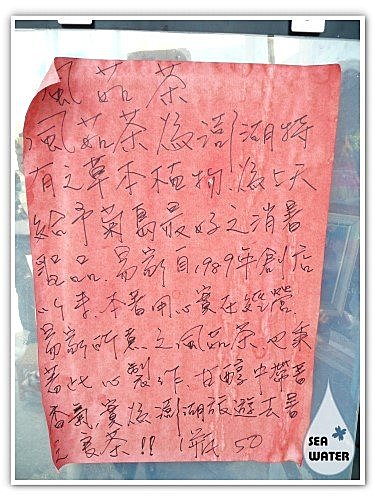 風茹茶
風茹茶為澎湖特
有之草本植物,為上天
給予菊島最好之消暑
聖品.易家自1989年創店
以來.本著用心實在經營.
易家所煮之風茹茶也秉
著此心製作.甘醇中帶著
香氣,實為澎湖旅遊去暑
之良茶!! 1瓶50
SEA
WATER